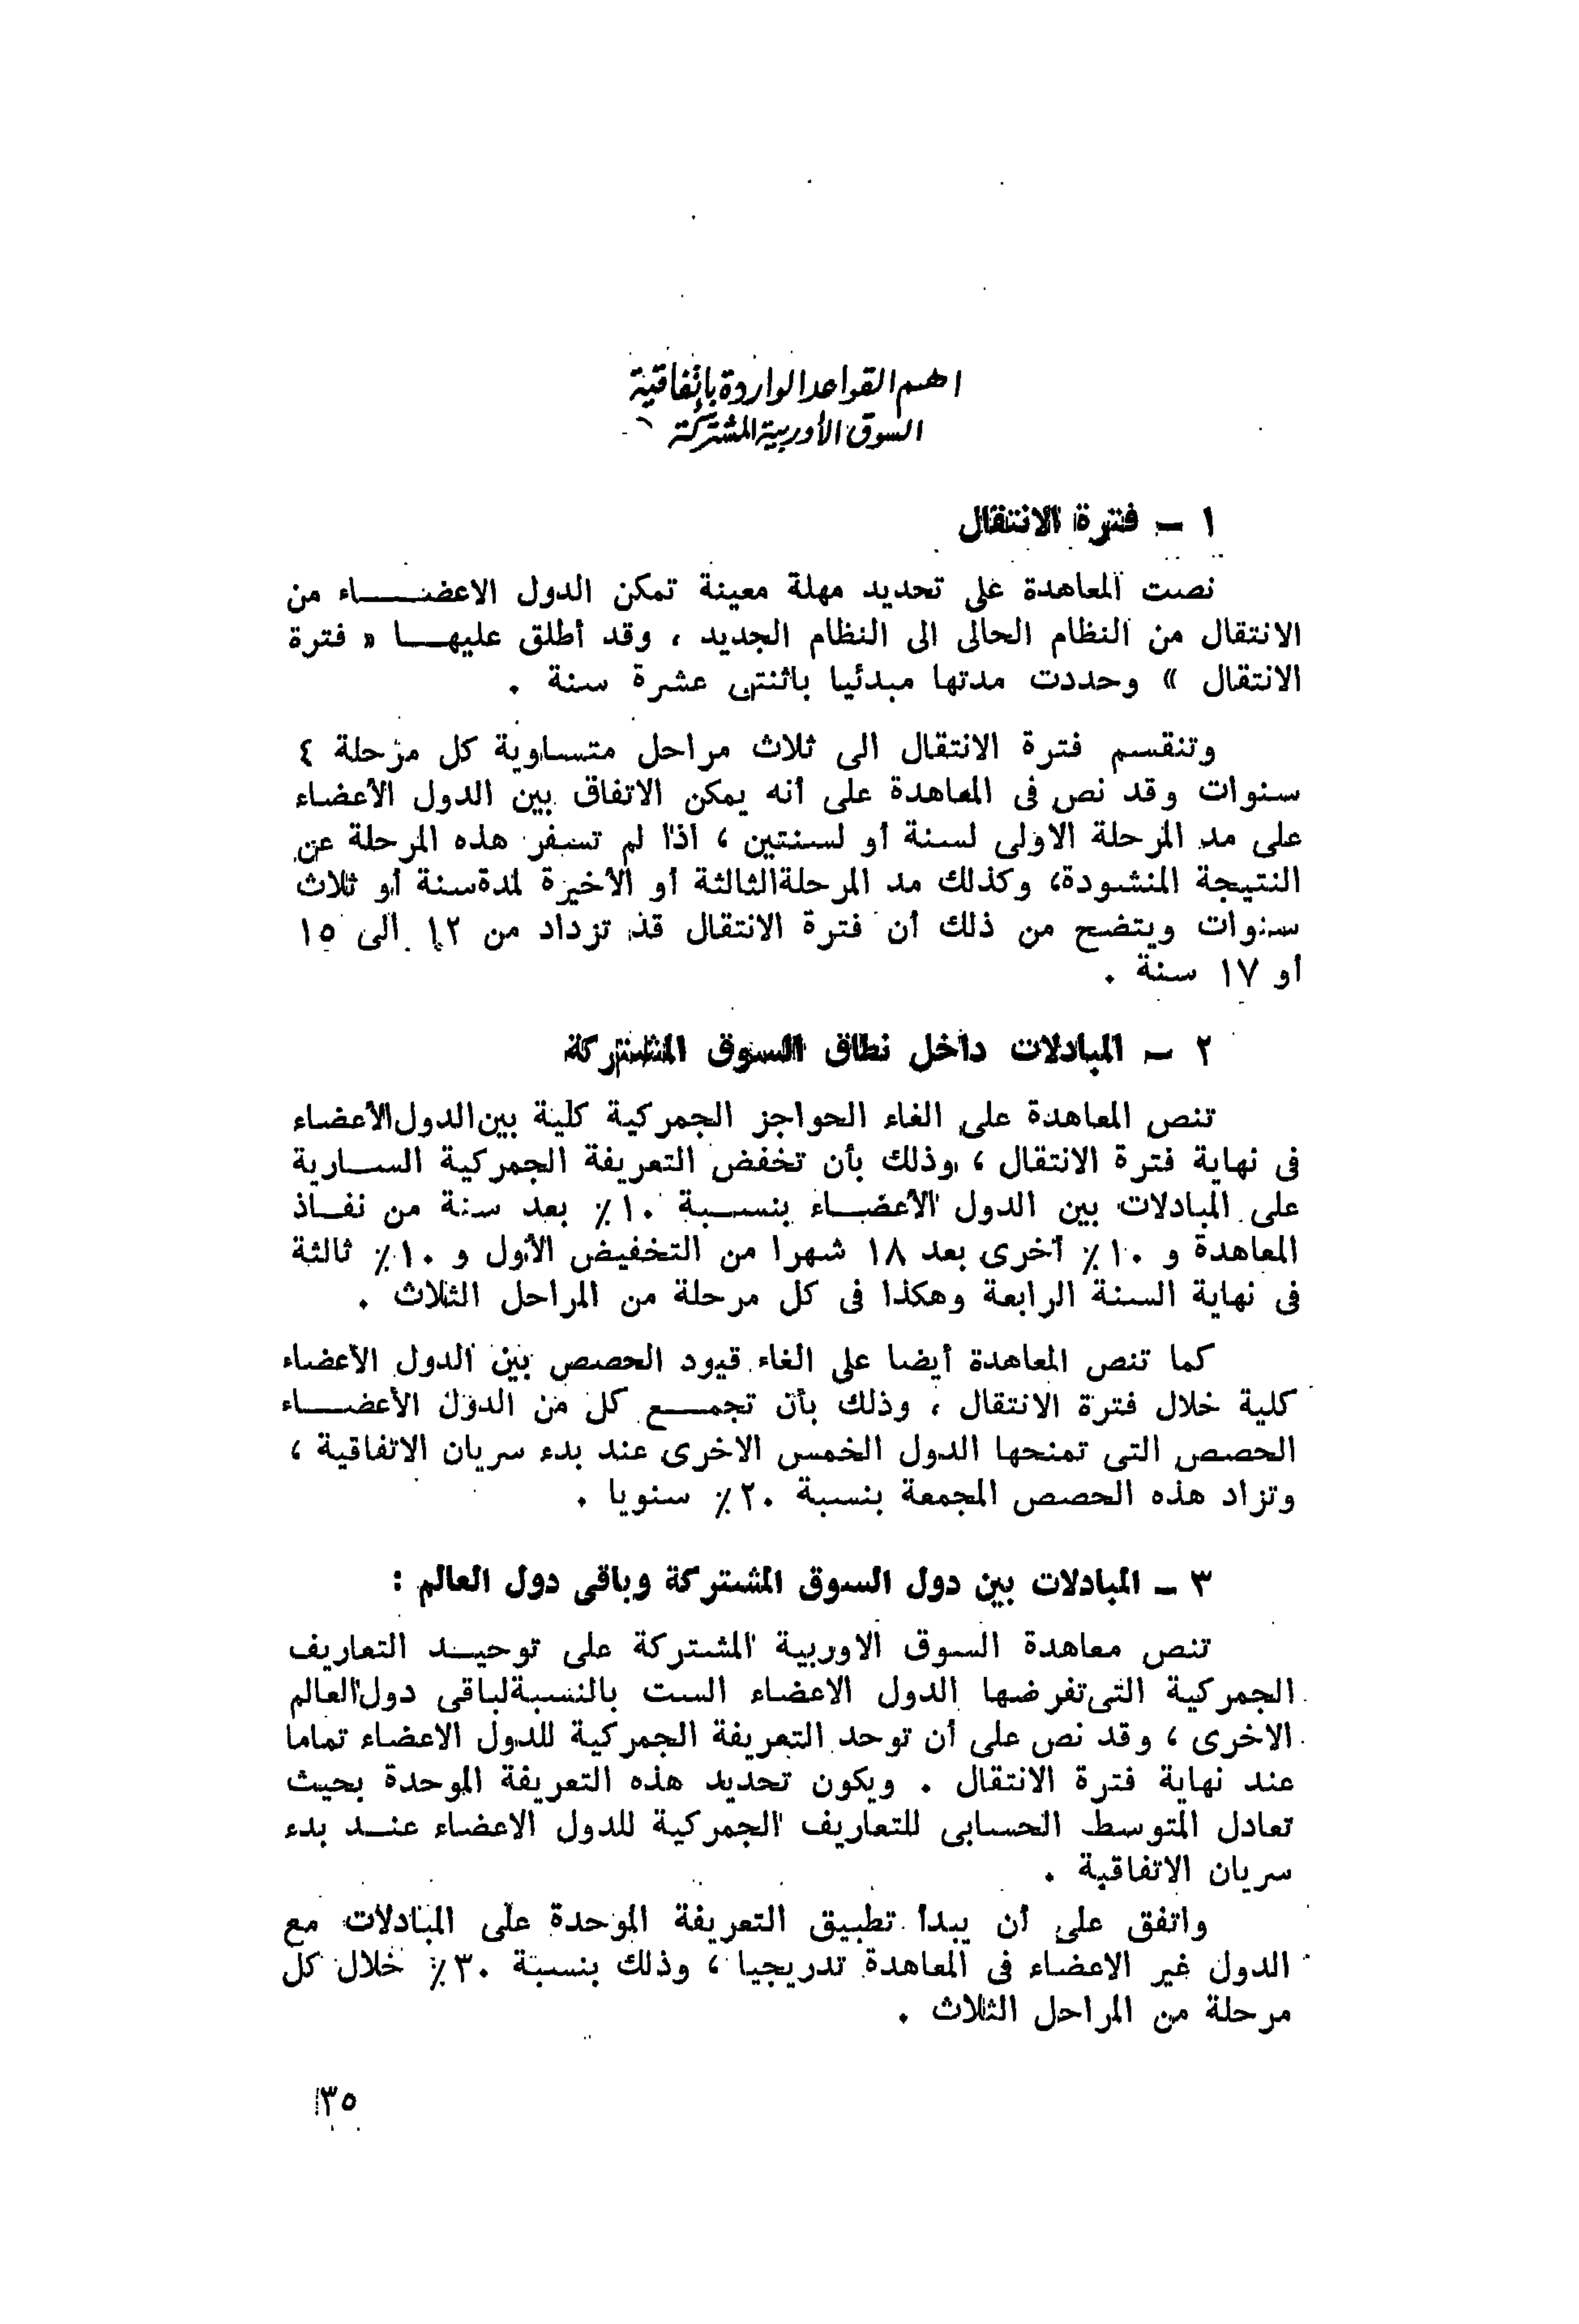 اهم القواعد الواردة بإتفاقية
السوق الأوربية المشتركة
١ - فترة الانتقال
نصت المعاهدة على تحديد مهلة معينة تمكن الدول الاعضاء من
الانتقال من النظام الحالى الى النظام الجديد ، وقد أطلق عليها « فترة
الانتقال » وحددت مدتها مبدئيا باثنتى عشرة سنة .
وتنقسم فترة الانتقال الى ثلاث مراحل متساوية كل مرحلة ٤
سنوات وقد نص فى المعاهدة على أنه يمكن الاتفاق بين الدول الأعضاء
على مد المرحلة الاولى لسنة أو لسنتين ، اذا لم تسفر هذه المرحلة عن
النتيجة المنشودة، وكذلك مد المرحلة الثالثة أو الأخيرة لمدة سنة أو ثلاث
سنوات ويتضح من ذلك أن فترة الانتقال قد تزداد من ١٢ الى ١٥
أو ١٧ سنة .
٢ - المبادلات داخل نطاق السوق المشتركة
تنص المعاهدة على الغاء الحواجز الجمركية كلية بين الدول الأعضاء
فى نهاية فترة الانتقال ، وذلك بأن تخفض التعريفة الجمركية السارية
على المبادلات بين الدول الأعضاء بنسبة ١٠٪ بعد سنة من نفاذ
المعاهدة و ١٠٪ أخرى بعد ١٨ شهرا من التخفيض الأول و ١٠٪ ثالثة
فى نهاية السنة الرابعة وهكذا فى كل مرحلة من المراحل الثلاث .
كما تنص المعاهدة أيضا على الغاء قيود الحصص بين الدول الأعضاء
كلية خلال فترة الانتقال ، وذلك بأن تجمع كل من الدول الأعضاء
الحصص التى تمنحها الدول الخمس الاخرى عند بدء سريان الاتفاقية ،
وتزاد هذه الحصص المجمعة بنسبة ٢٠٪ سنويا .
٣ - المبادلات بين دول السوق المشتركة وباقى دول العالم :
تنص معاهدة السوق الاوربية المشتركة على توحيد التعاريف
الجمركية التى تفرضها الدول الاعضاء الست بالنسبة لباقى دول العالم
الاخرى ، وقد نص على أن توحد التعريفة الجمركية للدول الاعضاء تماما
عند نهاية فترة الانتقال . ويكون تحديد هذه التعريفة الموحدة بحيث
تعادل المتوسط الحسابى للتعاريف الجمركية للدول الاعضاء عند بدء
سريان الاتفاقية .
واتفق على أن يبدأ تطبيق التعريفة الموحدة على المبادلات مع
الدول غير الاعضاء فى المعاهدة تدريجيا ، وذلك بنسبة ٣٠٪ خلال كل
مرحلة من المراحل الثلاث .
١٣٥